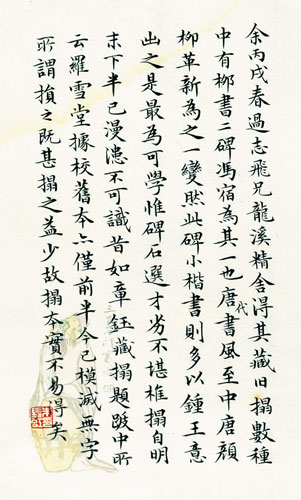 余丙戌春過志飛兄龍溪精舍得其藏旧搨數種
中有柳書二碑馮宿為其一也唐代書風至中唐顏
柳革新為之一變然此碑小楷書則多以鍾王意
出之是最為可學惟碑石選才劣不堪椎搨自明
末下半已漫漶不可識昔如章鈺藏搨題跋中所
云羅雪堂據校舊本亦僅前半今已模滅無字
所謂損之既甚搨之益少故搨本實不易得矣